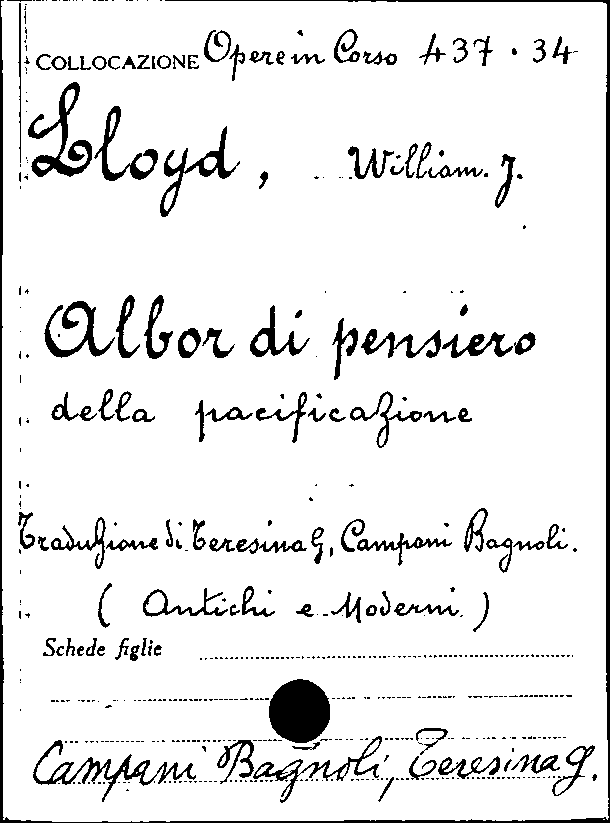 COLLOCAZIONE Opere in Corso 437 · 34
Lloyd, William. J.
Albor di pensiero
della pacificazione
Traduzione di Teresina G, Campani Bagnoli.
( Antichi e Moderni )
Schede figlie
Campani Bagnoli, Teresina G.